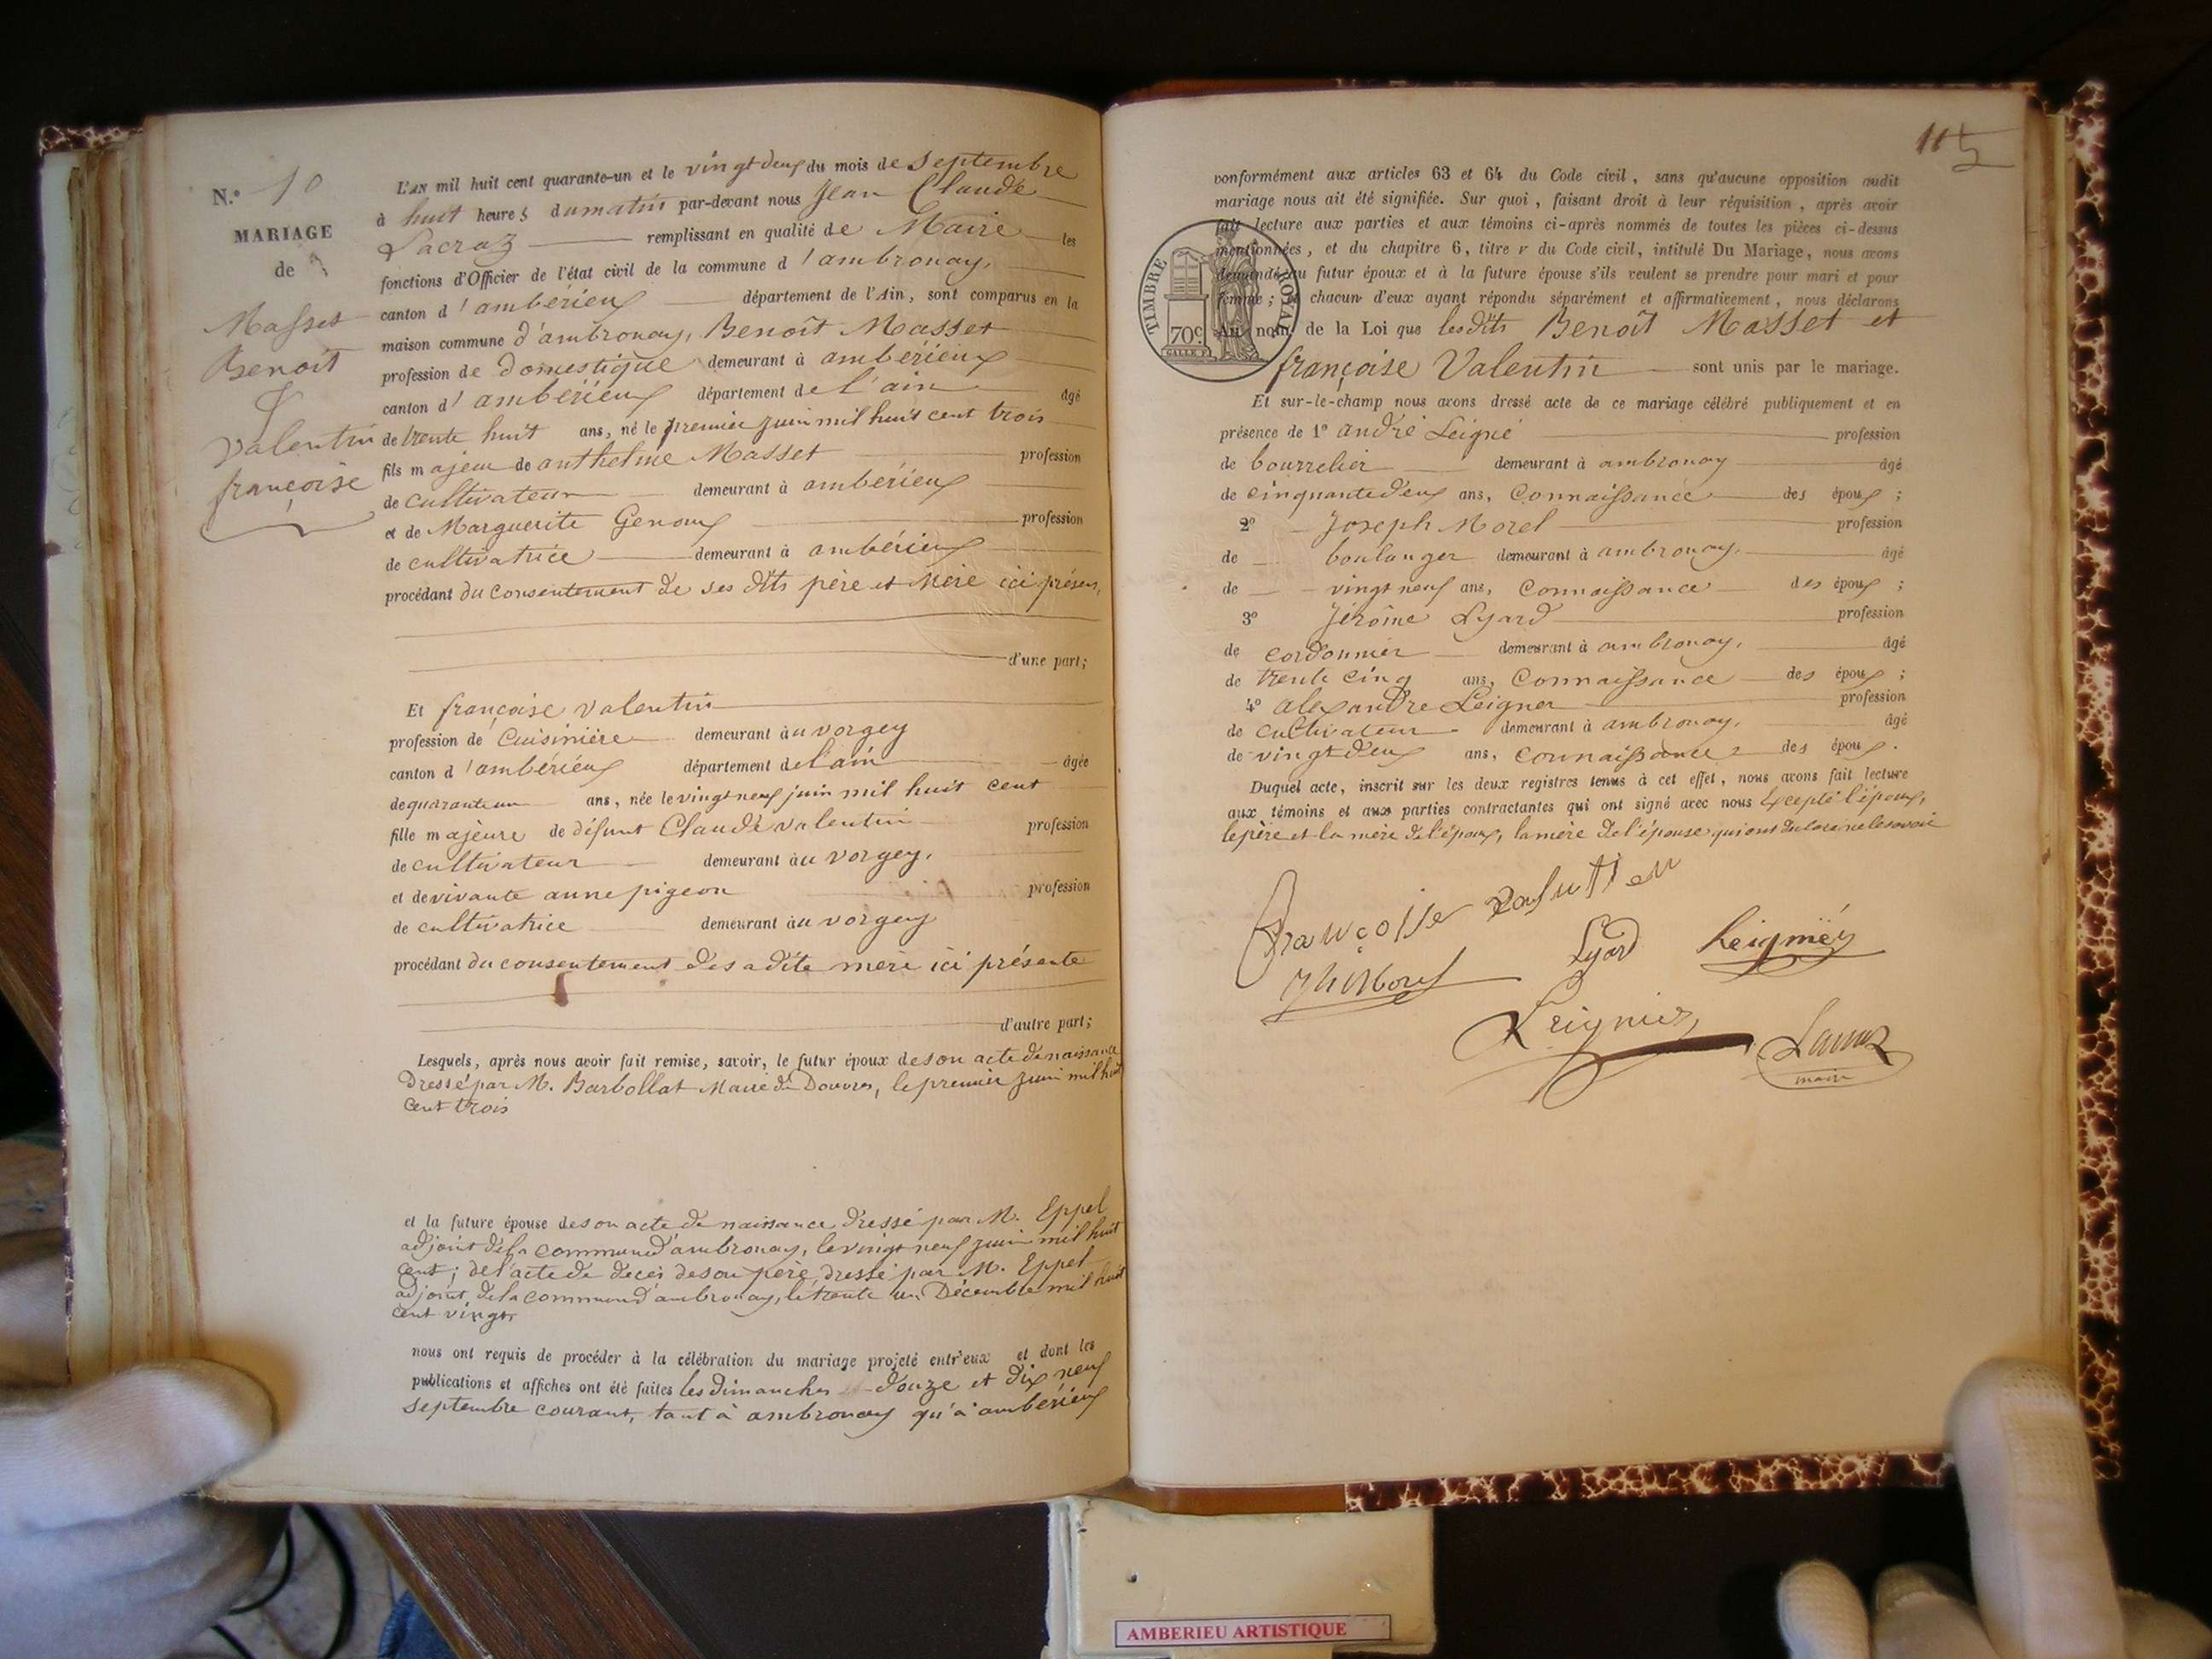 N.º 10
MARIAGE
de
Masset
Benoit
&
Valentin
françoise
L'AN mil huit cent quarante-un et le vingt deux du mois de Septembre
à huit heures du matin par-devant nous Jean Claude
Lacraz remplissant en qualité de Maire les
fonctions d'Officier de l'état civil de la commune d'ambronay,
canton d'ambérieux département de l'Ain, sont comparus en la
maison commune d'ambronay, Benoît Masset
profession de Domestique demeurant à ambérieux
canton d'ambérieux département de l'ain âgé
de trente huit ans, né le premier juin mil huit cent trois
fils majeur de anthelme Masset profession
de cultivateur demeurant à ambérieux
et de Marguerite Genoux profession
de cultivatrice demeurant à ambérieux
procédant du consentement de ses dits père et mère ici présens,
d'une part;
Et françoise valentin
profession de Cuisinière demeurant au vorgey
canton d'ambérieux département de l'ain âgée
de quarante un ans, née le vingt neuf juin mil huit cent
fille majeure de défunt Claude valentin profession
de cultivateur demeurant au vorgey,
et de vivante anne pigeon profession
de cultivatrice demeurant au vorgey
procédant du consentement de sa dite mère ici présente
d'autre part;
Lesquels, après nous avoir fait remise, savoir, le futur époux de son acte de naissance
Dressé par M. Barbollat Maire de Douvres, le premier juin mil huit
cent trois
et la future épouse de son acte de naissance Dressé par M. Eppel
adjoint de la commune d'ambronay, le vingt neuf juin mil huit
cent; de l'acte de décès de son père, dressé par M. Eppel
adjoint de la commune d'ambronay, le trente un Décembre mil huit
cent vingt.
nous ont requis de procéder à la célébration du mariage projeté entr'eux et dont les
publications et affiches ont été faites les dimanches douze et dix neuf
septembre courant, tant à ambronay qu'à ambérieux
115
conformément aux articles 63 et 64 du Code civil, sans qu'aucune opposition audit
mariage nous ait été signifiée. Sur quoi, faisant droit à leur réquisition, après avoir
fait lecture aux parties et aux témoins ci-après nommés de toutes les pièces ci-dessus
mentionnées, et du chapitre 6, titre v du Code civil, intitulé Du Mariage, nous avons
demandé au futur époux et à la future épouse s'ils veulent se prendre pour mari et pour
femme; et chacun d'eux ayant répondu séparément et affirmativement, nous déclarons
Au nom de la Loi que lesdits Benoît Masset et
françoise Valentin sont unis par le mariage.
TIMBRE ROYAL
70c
Et sur-le-champ nous avons dressé acte de ce mariage célébré publiquement et en
présence de 1º andré Leigné profession
de bourrelier demeurant à ambronay âgé
de cinquante deux ans, Connaissance des époux ;
2º Joseph Morel profession
de boulanger demeurant à ambronay, âgé
de vingt neuf ans, Connaissance des époux ;
3º Jérôme Lyard profession
de cordonnier demeurant à ambronay, âgé
de trente cinq ans, Connaissance des époux ;
4º alexandre Leigner profession
de cultivateur demeurant à ambronay, âgé
de vingt deux ans, connaissance des époux.
Duquel acte, inscrit sur les deux registres tenus à cet effet, nous avons fait lecture
aux témoins et aux parties contractantes qui ont signé avec nous Excepté l'époux,
le père et la mère de l'époux, la mère de l'épouse qui ont déclaré ne le savoir
Lyard
Leignier
maire
AMBERIEU ARTISTIQUE